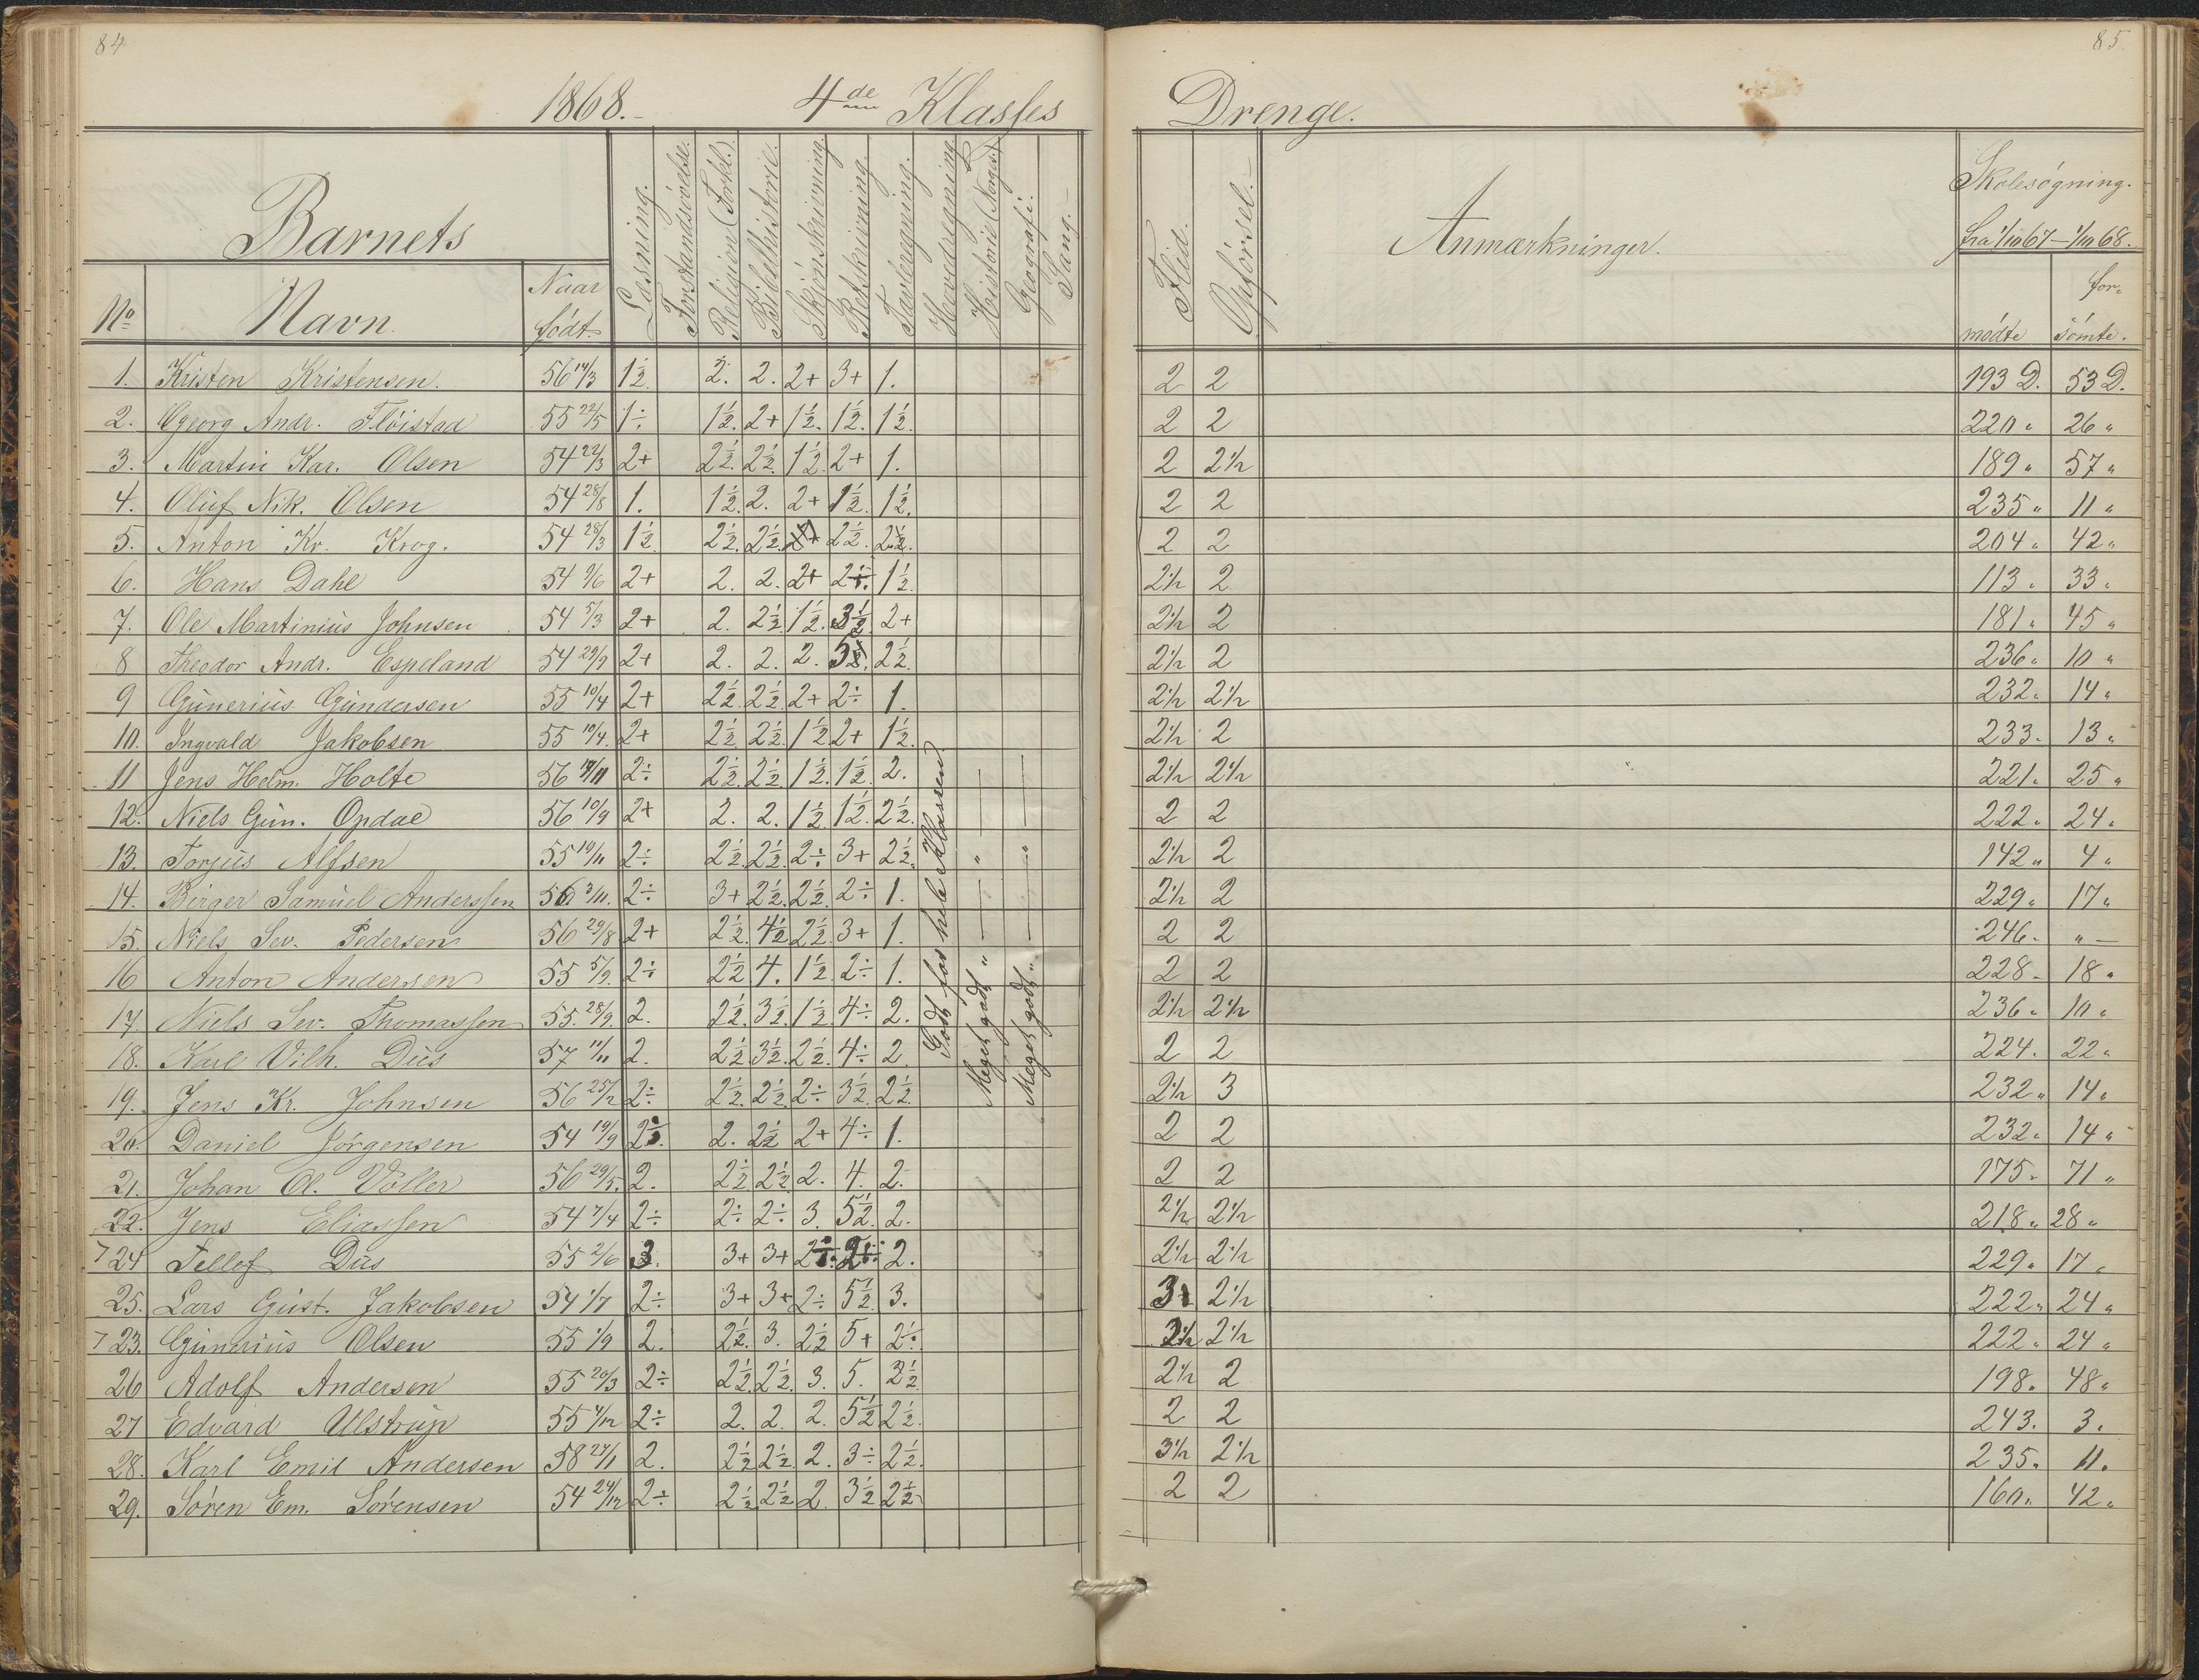 84
85
1868.- 4de Klasses Drenge.
Barnets
No Navn. Naar født.
Læsning. Forstandsøvelse. Religion (Forkl.) Bibelhistorie. Skjönskrivning. Retskrivning. Tavleregning. Hovedregning. Historie (Norges) Geografi. Sang.-
Flid. Opförsel.- Anmærkninger. Skolesögning. fra 1/10 67 - 1/10 68.
mödte for- sömte.
1. Kristen Kristensen. 56 14/3 1½. 2. 2. 2+ 3+ 1. 2 2 193 D. 53 D.
2. Georg Andr. Flöistad 55 22/5 1÷ 1½. 2+ 1½. 1½. 1½. 2 2 220 " 26 "
3. Martin Kar. Olsen 54 22/3 2+ 2½. 2½. 1½. 2+ 1. 2 2½ 189 " 57 "
4. Oluf Nik. Olsen 54 28/8 1. 1½. 2. 2+ 1½. 1½. 2 2 235 " 11 "
5. Anton Kr. Krog. 54 28/3 1½. 2½. 2½. 2½. 2½. 2 2 204 " 42 "
6. Hans Dahl 54 9/6 2+ 2. 2. 2+ 2÷ 1½. 2½ 2 113 " 33 "
7. Ole Martinius Johnsen 54 5/3 2+ 2. 2½. 1½. 3½. 2+ 2½ 2 181 " 45 "
8 Theodor Andr. Espeland 54 29/9 2+ 2. 2. 2. 2½. 2½ 2 236 " 10 "
9 Gunerius Gundersen 55 10/4 2+ 2½. 2½. 2+ 2÷ 1. 2½ 2½ 232 " 14 "
10. Ingvald Jakobsen 55 10/4. 2+ 2½. 2½. 1½. 2+ 1½. 2½ 2 233 " 13 "
11 Jens Helm. Holte 56 2÷ 2½. 2½. 1½. 1½. 2. 2½ 2½ 221 " 25 "
12. Niels Gun. Opdal 56 10/9 2+ 2. 2. 1½. 1½. 2½. 2 2 222 " 24 "
13. Torjus Alfsen 55 19/11 2÷ 2½. 2½. 2÷ 3+ 2½. 2½ 2 142 " 4 "
14. Birger Samuel Anderssen 56 3/11. 2÷ 3+ 2½. 2½. 2÷ 1. 2½ 2 229 " 17 "
15. Niels Sev. Pedersen 56 29/8 2+ 2½. 4½ 2½. 3+ 1. 2 2 246 " " —
16 Anton Andersen 55 5/2. 2÷ 2½ 4. 1½. 2÷ 1. 2 2 228 " 18 "
17. Niels Sev. Thomassen 55. 28/9. 2. 2½. 3½. 1½. 4÷ 2. 2½ 2½ 236 " 10 "
18. Karl Vilh. Dus 57 11/11 2. 2½. 3½. 2½. 4÷ 2. 2 2 224 " 22 "
19. Jens Kr. Johnsen 56 25/2 2÷ 2½. 2½. 2÷ 3½. 2½. 2½ 3 232 " 14 "
20. Daniel Jörgensen 54 19/9 2. 2½ 2+ 4÷ 1. 2 2 232 " 14 "
21. Johan Ol. Voller 56 29/5. 2. 2½. 2½ 2. 4. 2. 2 2 175 " 71 "
22. Jens Eliassen 54 7/4 2÷ 2÷ 2÷ 3. 5½. 2. 2½ 2½ 218 " 28 "
24 Tellef Dus 55 2/6 3. 3+ 3+ 2. 2½ 2½ 229 " 17 "
25. Lars Gust. Jakobsen 54 1/7 2÷ 3+ 3+ 2÷ 5½. 3. 2½ 222 " 24 "
23. Gunerius Olsen 55 1/9 2. 2½. 3. 2½ 5+ 2÷ 2½ 2½ 222 " 24 "
26 Adolf Andersen 55 20/3 2÷ 2½. 2½. 3. 5. 3½. 2½ 2 198 " 48 "
27 Edvard Ulstrup 55 4/12 2÷ 2. 2. 2. 5½ 2½. 2 2 243 " 3 "
28. Karl Emil Andersen 58 27/1 2. 2½ 2½. 2. 3÷ 2½. 3½ 2½ 235 " 11 "
29. Sören Em. Sörensen 54 24/12 2÷ 2½. 2½ 2. 3½ 2½ 2 2 160 " 42 "
Godt for hele Klassen.
Meget godt " — " —
Meget godt " — " —